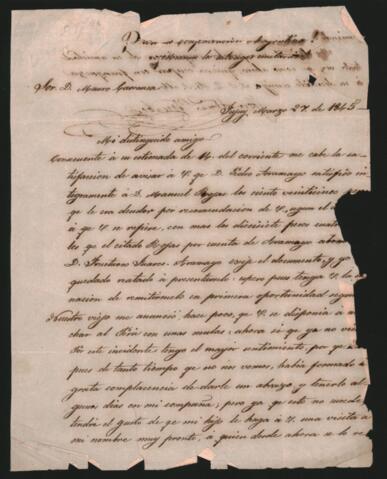 Viva la Confederacion Argentina!
Sor. D. Mauro Carranza
Jujuy, Marzo 27 de 1845
Mi distinguido amigo
Consecuente á su estimada de 14 del corriente me cabe la sa-
tisfaccion de avisar á V. qe D. Pedro Aramayo satisfizo in-
tegramente á D. Manuel Rojas los ciento veinticinco pesos
qe le era deudor por recomendacion de V. segun el
á qe V. se refiere, con mas los diecisiete pesos cuatro
les qe el citado Rojas por cuenta de Aramayo abonó
D. Fructuoso Suares. Aramayo exije el documento y
quedado Rojas á presentarselo: espero pues tenga V. la
nacion de remitirselo en primera oportunidad segun
Nuestro viejo me anunció, hace poco, qe V. se disponia á
char al Perú con unas mulas: ahora si que ya no
Por este incidente tengo el mayor sentimiento, por qe
pues de tanto tiempo qe no nos vemos, había formado
grata complacencia de darle un abrazo, y tenerlo al
gunos dias en mi compañia; pero ya que esto no sucede
tendré el gusto de qe mi hijo le haga á V. una visita á
mi nombre muy pronto, á quien desde ahora se lo re